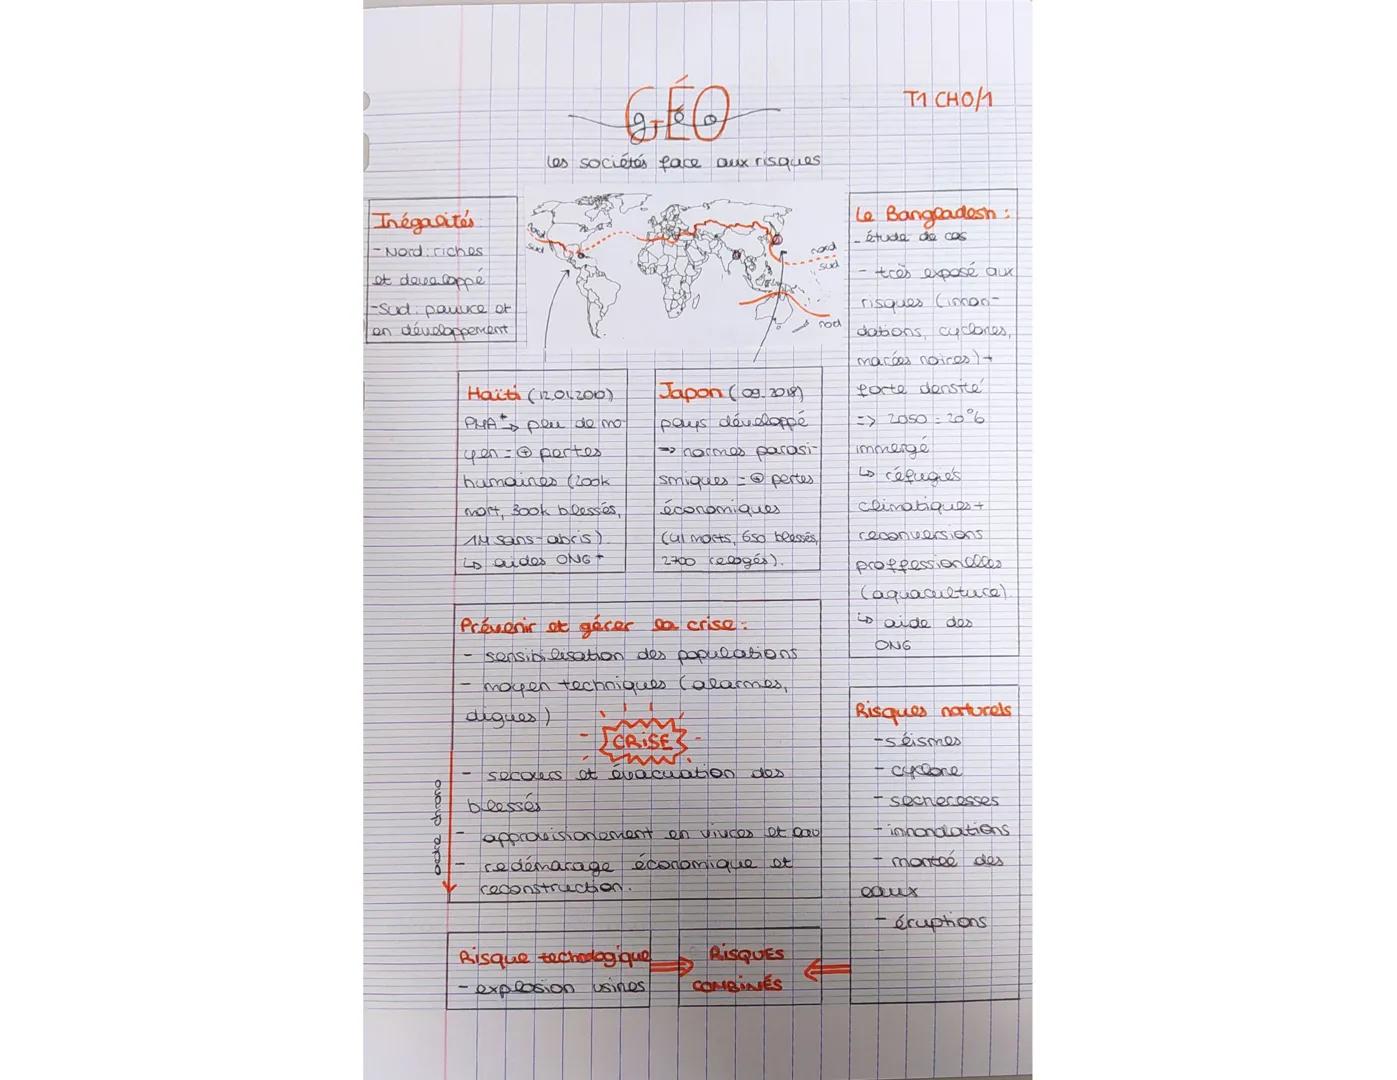 GÉO
géo
T1 CH0/1
Les sociétés face aux risques
Inégalités
- Nord : riches
et développé
- Sud : pauvre et
en développement
nord
sud
nord
sud
nord
Le Bangladesh :
- étude de cas
- très exposé aux
risques (innon-
dations, cyclones,
marées noires) +
forte densité
=> 2050 = 20%
immergé
↳ réfugiés
climatiques +
reconversions
proffessionelles
(aquaculture).
↳ aide des
ONG
Haïti (12.01.2010)
PMA + → peu de mo-
yen = ⊕ pertes
humaines (200k
mort, 300k blessés,
1M sans-abris).
↳ aides ONG +
Japon (09.2018)
pays développé
→ normes parasi-
smiques = ⊕ pertes
économiques
(41 morts, 650 blessés,
2700 relogés).
Prévenir et gérer la crise :
- sensibilisation des populations
- moyen techniques (alarmes,
digues)
CRISE
- secours et évacuation des
blessés
- approvisionement en vivres et eau
- redémarage économique et
reconstruction.
Risques naturels
- séismes
- cyclone
- secheresses
- innondations
- monteé des
eaux
- éruptions
-
Risque technologique
- explosion usines
RISQUES
COMBINÉS